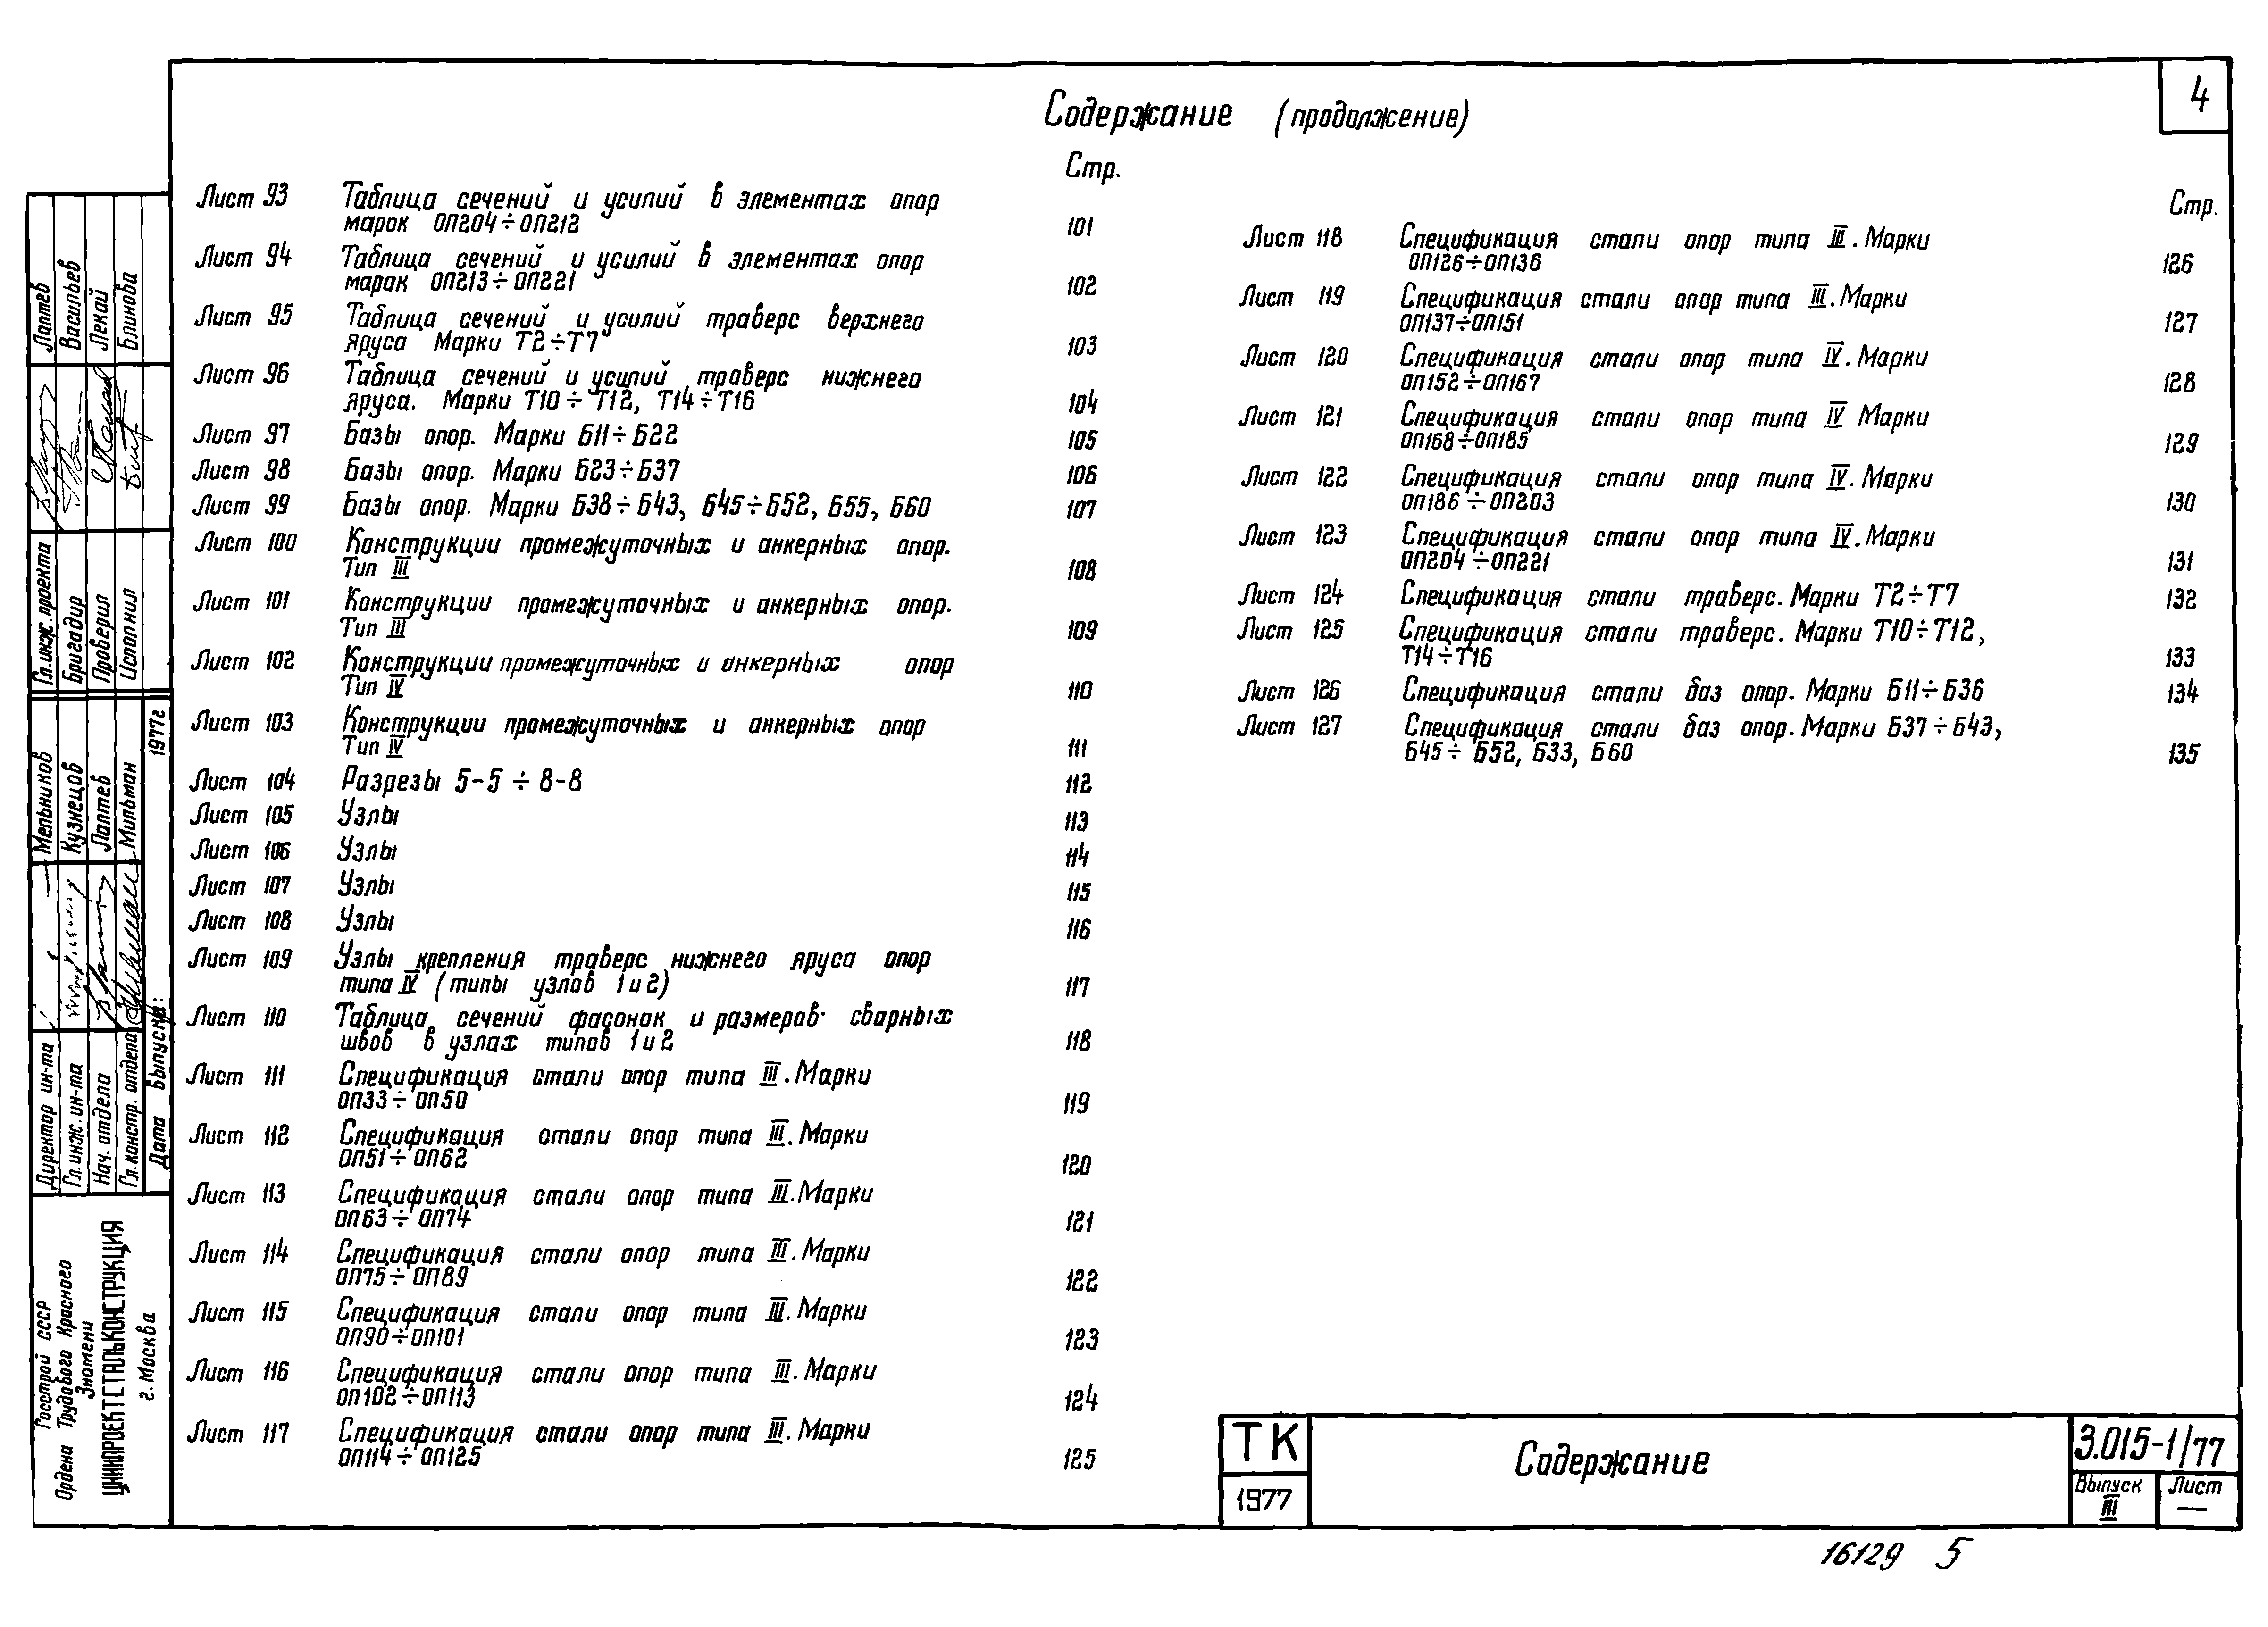 4
Содержание (продолжение)
Стр.
Лист 93 Таблица сечений и усилий в элементах опор
марок ОП204÷ОП212 101
Лист 94 Таблица сечений и усилий в элементах опор
марок ОП213÷ОП221 102
Лист 95 Таблица сечений и усилий траверс верхнего
яруса Марки Т2÷Т7 103
Лист 96 Таблица сечений и усилий траверс нижнего
яруса. Марки Т10÷Т12, Т14÷Т16 104
Лист 97 Базы опор. Марки Б11÷Б22 105
Лист 98 Базы опор. Марки Б23÷Б37 106
Лист 99 Базы опор. Марки Б38÷Б43, Б45÷Б52, Б55, Б60 107
Лист 100 Конструкции промежуточных и анкерных опор.
Тип III 108
Лист 101 Конструкции промежуточных и анкерных опор.
Тип III 109
Лист 102 Конструкции промежуточных и анкерных опор
Тип IV 110
Лист 103 Конструкции промежуточных и анкерных опор
Тип IV 111
Лист 104 Разрезы 5-5 ÷ 8-8 112
Лист 105 Узлы 113
Лист 106 Узлы 114
Лист 107 Узлы 115
Лист 108 Узлы 116
Лист 109 Узлы крепления траверс нижнего яруса опор
типа IV (типы узлов 1 и 2) 117
Лист 110 Таблица сечений фасонок и размеров сварных
швов в узлах типов 1 и 2 118
Лист 111 Спецификация стали опор типа III. Марки
ОП33÷ОП50 119
Лист 112 Спецификация стали опор типа III. Марки
ОП51÷ОП62 120
Лист 113 Спецификация стали опор типа III. Марки
ОП63÷ОП74 121
Лист 114 Спецификация стали опор типа III. Марки
ОП75÷ОП89 122
Лист 115 Спецификация стали опор типа III. Марки
ОП90÷ОП101 123
Лист 116 Спецификация стали опор типа III. Марки
ОП102÷ОП113 124
Лист 117 Спецификация стали опор типа III. Марки
ОП114÷ОП125 125
Стр.
Лист 118 Спецификация стали опор типа III. Марки
ОП126÷ОП136 126
Лист 119 Спецификация стали опор типа III. Марки
ОП137÷ОП151 127
Лист 120 Спецификация стали опор типа IV. Марки
ОП152÷ОП167 128
Лист 121 Спецификация стали опор типа IV Марки
ОП168÷ОП185 129
Лист 122 Спецификация стали опор типа IV. Марки
ОП186÷ОП203 130
Лист 123 Спецификация стали опор типа IV. Марки
ОП204÷ОП221 131
Лист 124 Спецификация стали траверс. Марки Т2÷Т7 132
Лист 125 Спецификация стали траверс. Марки Т10÷Т12,
Т14÷Т16 133
Лист 126 Спецификация стали баз опор. Марки Б11÷Б36 134
Лист 127 Спецификация стали баз опор. Марки Б37÷Б43,
Б45÷Б52, Б33, Б60 135
Гл. инж. проекта Лаптев
Бригадир Васильев
Проверил Лекай
Исполнил Блинова
Директор ин-та Мельников
Гл. инж. ин-та Кузнецов
Нач. отдела Лаптев
Гл. констр. отдела Мильман
Дата выпуска: 1977г
Госстрой СССР
Ордена Трудового Красного
Знамени
ЦНИИПРОЕКТСТАЛЬКОНСТРУКЦИЯ
г. Москва
ТК
1977
Содержание
3.015-1/77
Выпуск
III
Лист
—
16129 5